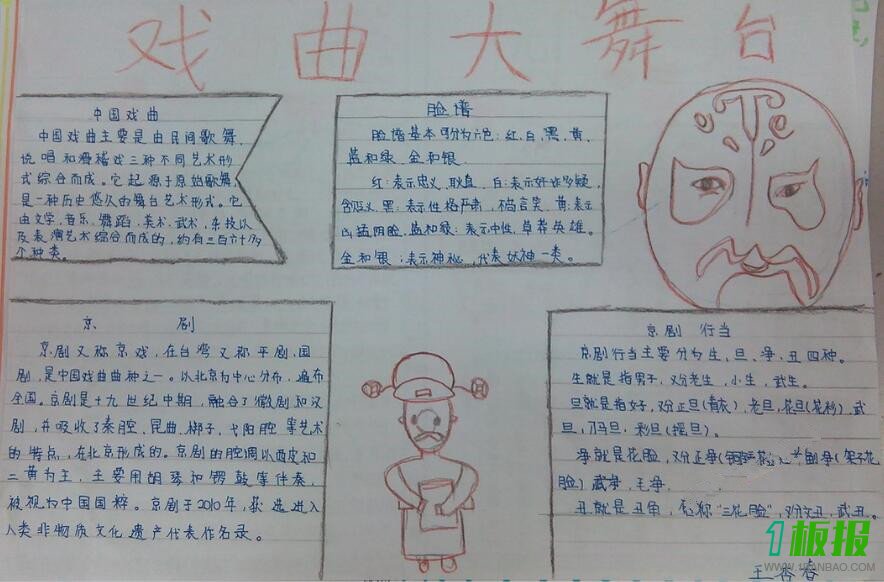 戏曲大舞台
中国戏曲
中国戏曲主要是由民间歌舞、
说唱和滑稽戏三种不同艺术形
式综合而成。它起源于原始歌舞,
是一种历史悠久的舞台艺术形式。它
由文学,音乐,舞蹈,美术,武术,杂技以
及表演艺术综合而成的,约有三百六十多
个种类。
脸谱
脸谱基本可分为六色:红,白,黑,黄,
蓝和绿,金和银.
红:表示忠义,耿直,白:表示奸诈多疑,
黑:表示性格严肃,不苟言笑,黄:表示
凶猛阴险,蓝和绿:表示中性,草莽英雄。
金和银:表示神秘,代表妖神一类。
京剧
京剧又称京戏,在台湾又称平剧,国
剧,是中国戏曲曲种之一。以北京为中心分布,遍布
全国。京剧是十九世纪中期,融合了徽剧和汉
剧,并吸收了秦腔,昆曲,梆子,弋阳腔等艺术
的特点,在北京形成的。京剧的腔调以西皮和
二黄为主,主要用胡琴和锣鼓等伴奏,
被视为中国国粹。京剧于2010年,获选进入
人类非物质文化遗产代表作名录。
京剧行当
京剧行当主要分为生,旦,净,丑四种。
生就是指男子,又分老生,小生,武生。
旦就是指女子,又分正旦(青衣),老旦,花旦(花衫)武
旦,刀马旦,彩旦(摇旦)。
净就是花脸,又分正净 副净(架子花
脸)武净,毛净.
丑就是丑角, 称"三花脸",又分文丑,武丑。
王春
1板报
WWW.1BANBAO.COM